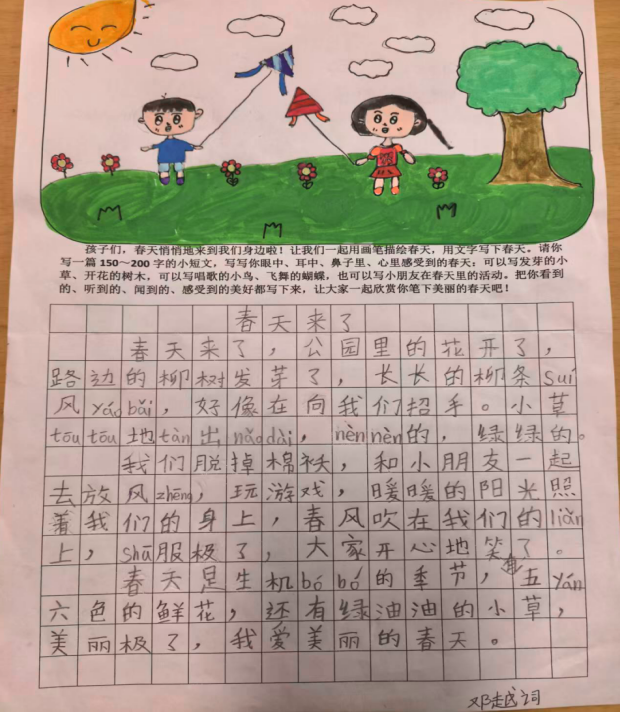 孩子们，春天悄悄地来到我们身边啦！让我们一起用画笔描绘春天，用文字写下春天。请你
写一篇 150～200 字的小短文，写写你眼中、耳中、鼻子里、心里感受到的春天：可以写发芽的小
草、开花的树木，可以写唱歌的小鸟、飞舞的蝴蝶，也可以写小朋友在春天里的活动。把你看到
的、听到的、闻到的、感受到的美好都写下来，让大家一起欣赏你笔下美丽的春天吧！
春天来了
春天来了，公园里的花开了，
路边的柳树发芽了，长长的柳条suí
风yáobǎi，好像在向我们招手。小草
tōu tōu 地tàn出nǎodài，nèn nèn的，绿绿的。
我们脱掉棉袄，和小朋友一起
去放风zhēng，玩游戏，暖暖的阳光照
着我们的身上，春风吹在我们的liǎn
上，shū服极了，大家开心地笑了。
春天是生机bó bó的季节，有五yán
六色的鲜花，还有绿油油的小草，
美丽极了，我爱美丽的春天。
邓越词